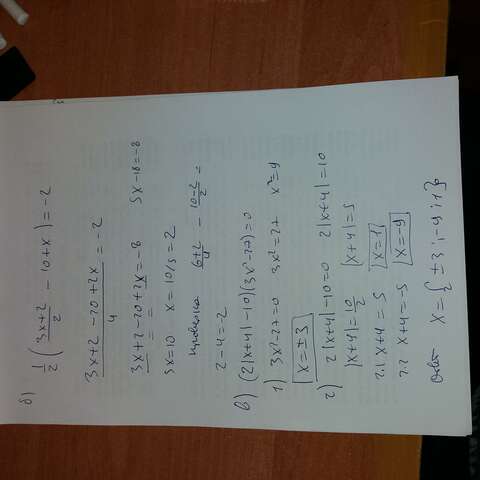 б) 1/2 ( (3x+2)/2 - 10+x ) = -2
(3x+2-20+2x)/4 = -2
3x+2-20+2x=-8 5x-18=-8
5x=10 x=10/5=2
проверка (6+2)/2 - (10-2)/2 =
2-4=-2
в) (2|x+4|-10)(3x²-27)=0
1) 3x²-27=0 3x²=27 x²=9
x=±3
2) 2|x+4|-10=0 2|x+4|=10
|x+4|=10/2 |x+4|=5
2.1 x+4=5 x=1
2.2 x+4=-5 x=-9
Ответ x={±3;-9;1}